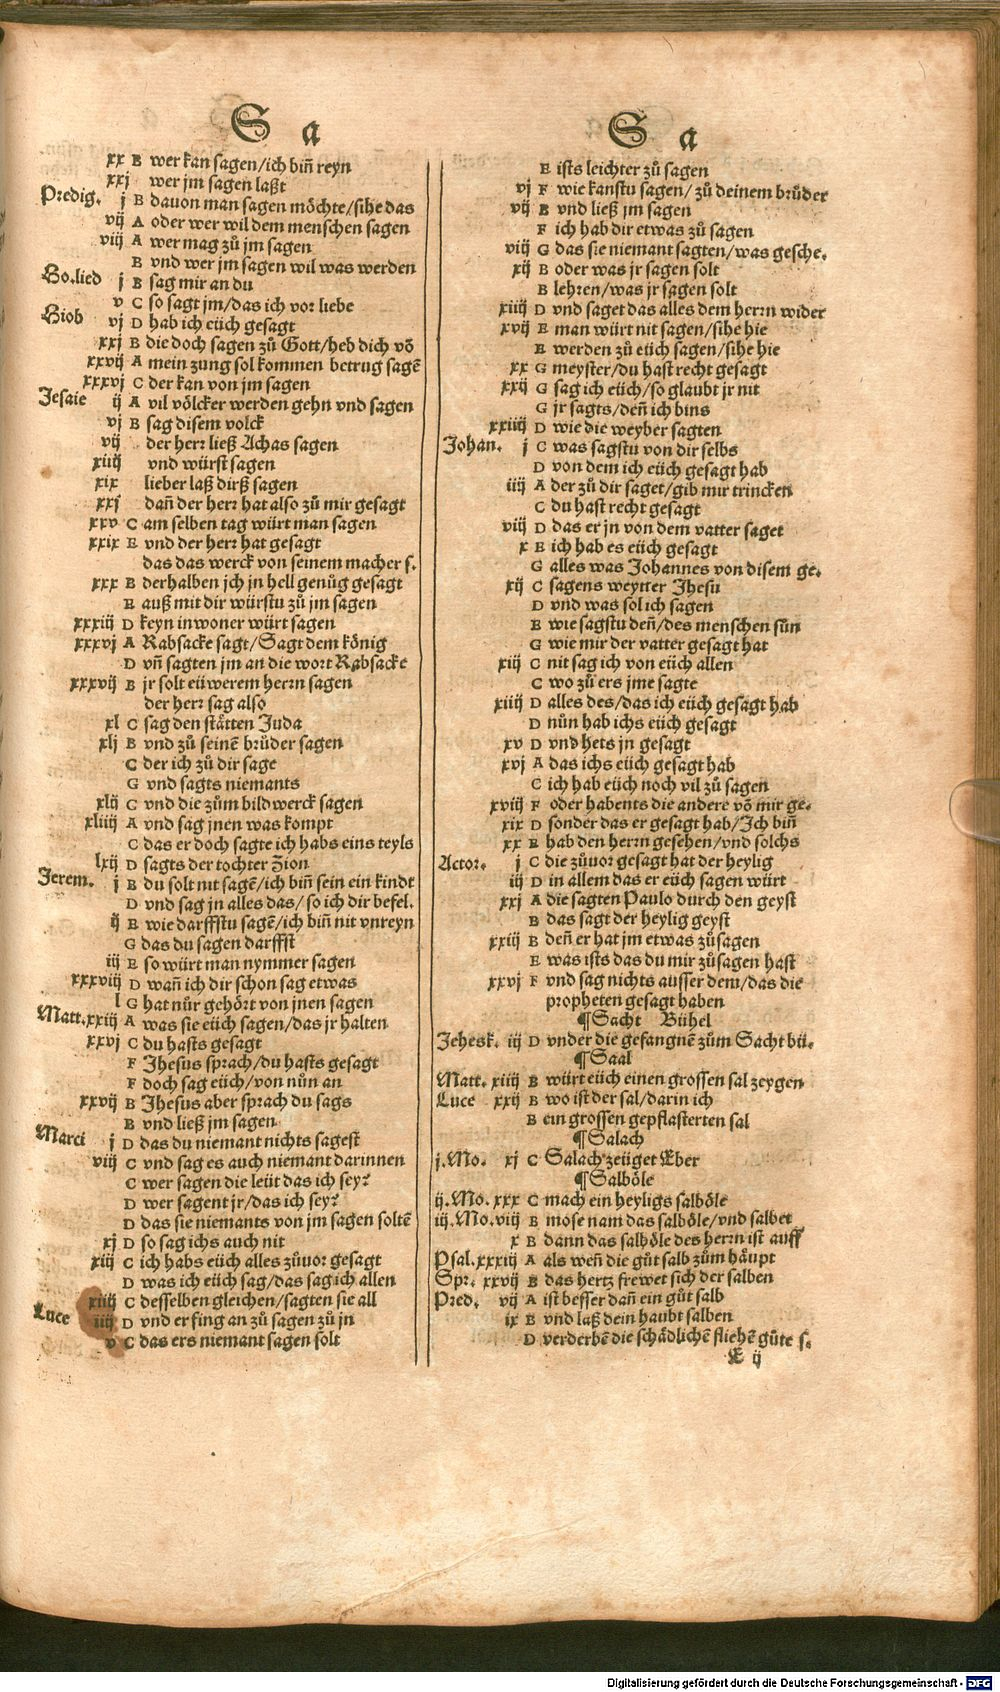 S a
xx B wer kan sagen/ich biñ reyn
xxj wer jm sagen laßt
Predig. j B dauon man sagen möchte/sihe das
vij A oder wer wil dem menschen sagen
viij A wer mag zů jm sagen
B vnd wer jm sagen wil was werden
Ho.lied j B sag mir an du
v C so sagt jm/das ich vor liebe
Hiob vj D hab ich eüch gesagt
xxj B die doch sagen zů Gott/heb dich võ
xxvij A mein zung sol kommen betrug sagẽ
xxxvj C der kan von jm sagen
Jesaie ij A vil völcker werden gehn vnd sagen
vj B sag disem volck
vij der herr ließ Achas sagen
xiiij vnd würst sagen
xix lieber laß dirß sagen
xxj dañ der herr hat also zů mir gesagt
xxv C am selben tag würt man sagen
xxix E vnd der herr hat gesagt
das das werck von seinem macher s.
xxx B derhalben jch jn hell genůg gesagt
E auß mit dir würstu zů jm sagen
xxxiij D keyn inwoner würt sagen
xxxvj A Rabsacke sagt/Sagt dem könig
D vñ sagten jm an die wort Rabsacke
xxxvij B jr solt eüwerem herrn sagen
der herr sag also
xl C sag den stätten Juda
xlj B vnd zů seinẽ brůder sagen
C der ich zů dir sage
G vnd sagts niemants
xlij C vnd die zům bildwerck sagen
xliiij A vnd sag jnen was kompt
C das er doch sagte ich habs eins teyls
lxij D sagts der tochter Zion
Jerem. j B du solt nit sagẽ/ich biñ sein ein kindt
D vnd sag jn alles das/so ich dir befel.
ij E wie darffstu sagẽ/ich biñ nit vnreyn
G das du sagen darffst
iij E so würt man nymmer sagen
xxxviij D wañ ich dir schon sag etwas
l G hat nůr gehört von jnen sagen
Matt. xxiij A was sie eüch sagen/das jr halten
xxvj C du hasts gesagt
F Jhesus sprach/du hasts gesagt
F doch sag eüch/von nůn an
xxvij B Jhesus aber sprach du sags
B vnd ließ jm sagen
Marci j D das du niemant nichts sagest
viij C vnd sag es auch niemant darinnen
C wer sagen die leüt das ich sey?
D wer sagent jr/das ich sey?
D das sie niemants von jm sagen soltẽ
xj D so sag ichs auch nit
xiij C ich habs eüch alles zůuor gesagt
D was ich eüch sag/das sag ich allen
xiiij C desselben gleichen/sagten sie all
Luce iiij D vnd er fing an zů sagen zů jn
v C das ers niemant sagen solt
S a
E ists leichter zů sagen
vj F wie kanstu sagen/zů deinem brůder
vij B vnd ließ jm sagen
F ich hab dir etwas zů sagen
viij G das sie niemant sagten/was gesche.
xij B oder was jr sagen solt
B lehren/was jr sagen solt
xiiij D vnd saget das alles dem herrn wider
xvij E man würt nit sagen/sihe hie
E werden zů eüch sagen/sihe hie
xx G meyster/du hast recht gesagt
xxij G sag ich eüch/so glaubt jr nit
G jr sagts/deñ ich bins
xxiiij D wie die weyber sagten
Johan. j C was sagstu von dir selbs
D von dem ich eüch gesagt hab
iiij A der zů dir saget/gib mir trincken
C du hast recht gesagt
viij D das er jn von dem vatter saget
x E ich hab es eüch gesagt
G alles was Johannes von disem ge.
xij C sagens weytter Jhesu
D vnd was sol ich sagen
E wie sagstu deñ/des menschen sůn
G wie mir der vatter gesagt hat
xiij C nit sag ich von eüch allen
C wo zů ers jme sagte
xiiij D alles des/das ich eüch gesagt hab
D nůn hab ichs eüch gesagt
xv D vnd hets jn gesagt
xvj A das ichs eüch gesagt hab
C ich hab eüch noch vil zů sagen
xviij F oder habents die andere võ mir ge.
xix D sonder das er gesagt hab/Ich biñ
xx E hab den herrn gesehen/vnd solchs
Actor. j C die zůuor gesagt hat der heylig
iij D in allem das er eüch sagen würt
xxj A die sagten Paulo durch den geyst
B das sagt der heylig geyst
xxiij B deñ er hat jm etwas zůsagen
E was ists das du mir zůsagen hast
xxvj F vnd sag nichts ausser dem/das die
propheten gesagt haben
¶Sacht Bühel
Jehesk. iij D vnder die gefangnẽ zům Sacht bü.
¶Saal
Matt. xiiij B würt eüch einen grossen sal zeygen
Luce xxij B wo ist der sal/darin ich
B ein grossen gepflasterten sal
¶Salach
j.Mo. xj C Salach zeüget Eber
¶Salböle
ij.Mo. xxx C mach ein heyligs salböle
iij.Mo. viij B mose nam das salböle/vnd salbet
x B dann das salböle des herrn ist auff
Psal. xxxiij A als weñ die gůt salb zům häupt
Spr. xxvij B das hertz frewet sich der salben
Pred. vij A ist besser dañ ein gůt salb
ix B vnd laß dein haubt salben
D verderbẽ die schädlichẽ fliehẽ gůte s.
E ij
Digitalisierung gefördert durch die Deutsche Forschungsgemeinschaft - DFG